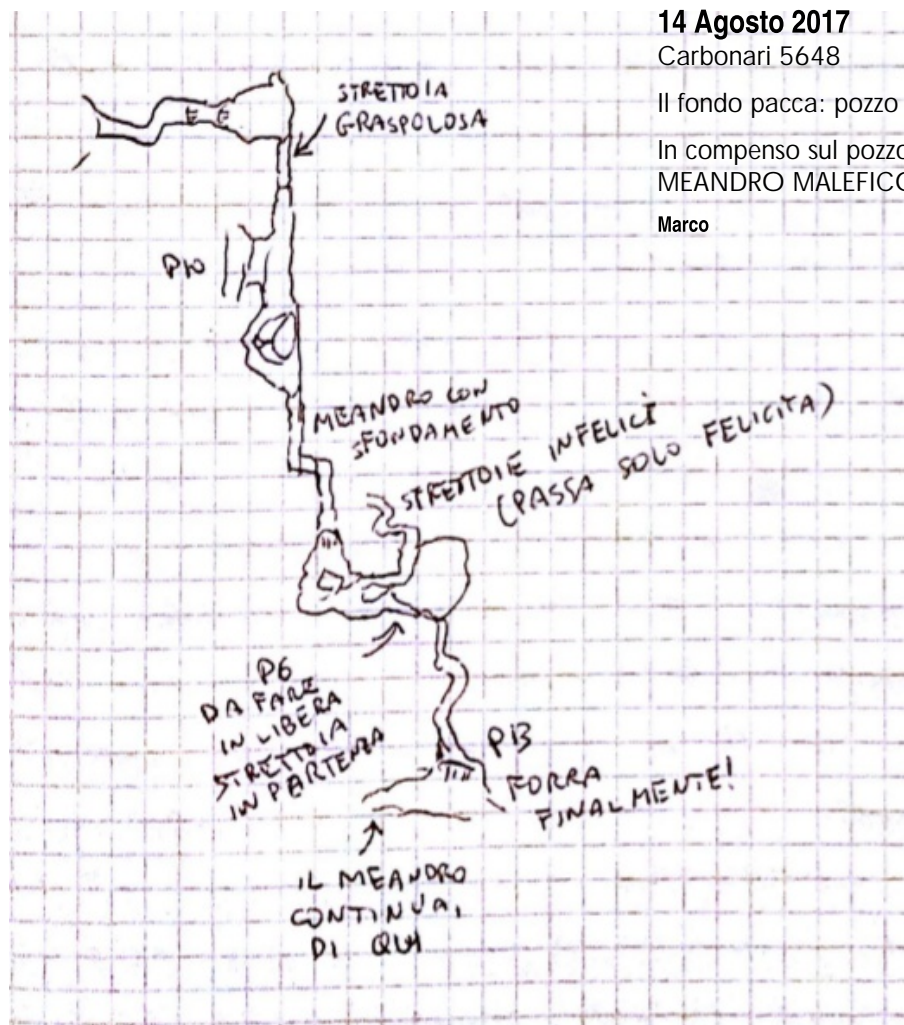 14 Agosto 2017
Carbonari 5648
Il fondo pacca: pozzo
In compenso sul pozzo
MEANDRO MALEFICO
Marco
STRETTOIA
GRASPOLOSA
P10
MEANDRO CON
SFONDAMENTO
STRETTOIE INFELICI
(PASSA SOLO FELICITA)
P6
DA FARE
IN LIBERA
STRETTOIA
IN PARTENZA
P13
FORRA
FINALMENTE!
IL MEANDRO
CONTINUA,
DI QUI